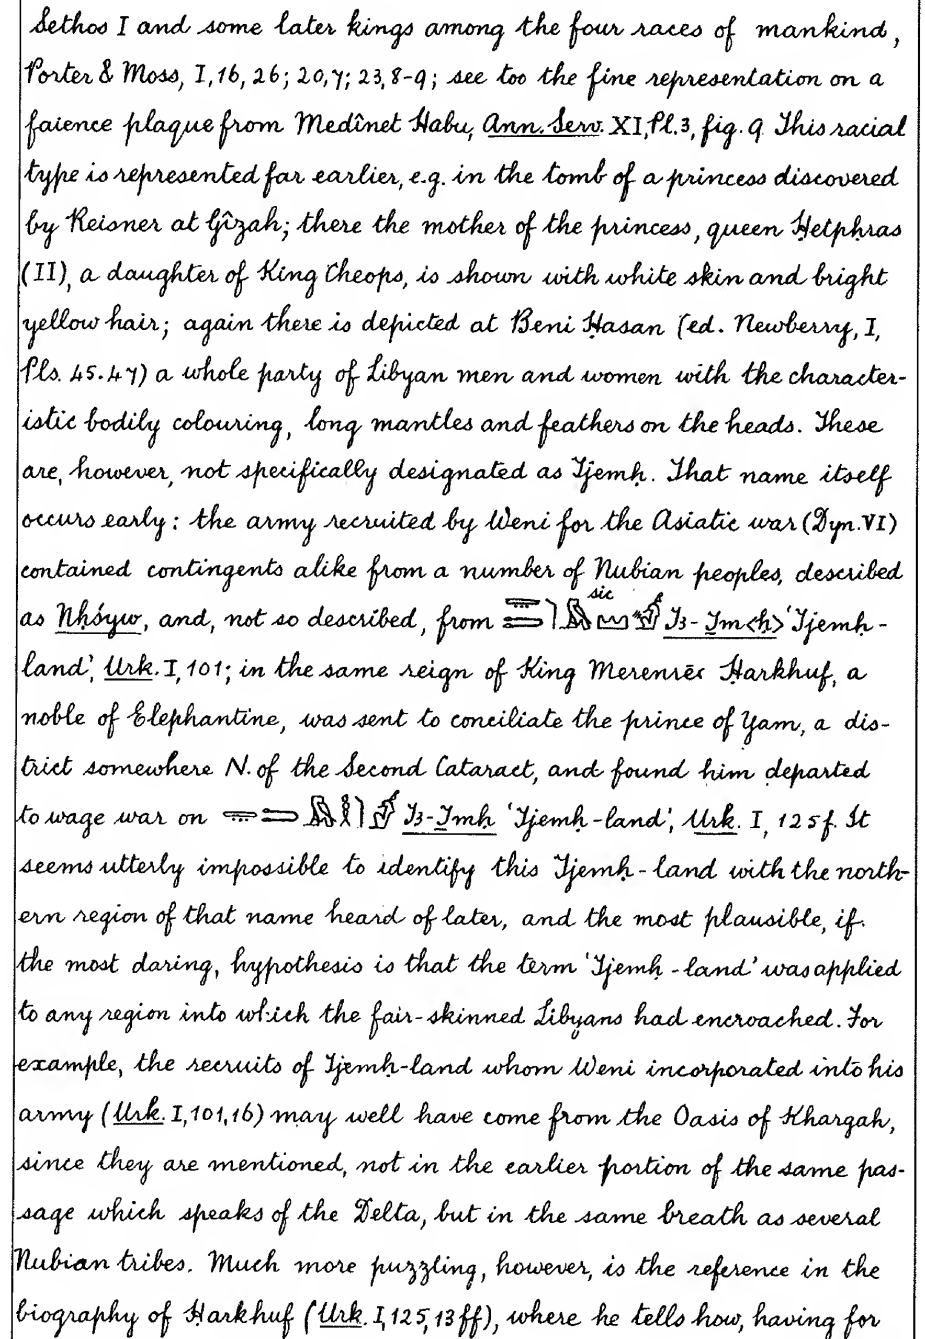 Sethos I and some later kings among the four races of mankind,
Porter & Moss, I, 16, 26; 20, 7; 23, 8-9; see too the fine representation on a
faience plaque from Medînet Habu, Ann. Serv. XI, Pl. 3, fig. 9. This racial
type is represented far earlier, e.g. in the tomb of a princess discovered
by Reisner at Gîzah; there the mother of the princess, queen Ḥetpḥras
(II), a daughter of King Cheops, is shown with white skin and bright
yellow hair; again there is depicted at Beni Ḥasan (ed. Newberry, I,
Pls. 45.47) a whole party of Libyan men and women with the character-
istic bodily colouring, long mantles and feathers on the heads. These
are, however, not specifically designated as Tjemḥ. That name itself
occurs early: the army recruited by Weni for the Asiatic war (Dyn. VI)
contained contingents alike from a number of Nubian peoples, described
as Nḥśyw, and, not so described, from sic Tꜣ-Ṯm<ḥ> 'Tjemḥ-
land', Urk. I, 101; in the same reign of King Merenrēꜥ Ḥarkhuf, a
noble of Elephantine, was sent to conciliate the prince of Yam, a dis-
trict somewhere N. of the Second Cataract, and found him departed
to wage war on Tꜣ-Ṯmḥ 'Tjemḥ-land', Urk. I, 125 f. It
seems utterly impossible to identify this Tjemḥ-land with the north-
ern region of that name heard of later, and the most plausible, if
the most daring, hypothesis is that the term 'Tjemḥ-land' was applied
to any region into which the fair-skinned Libyans had encroached. For
example, the recruits of Tjemḥ-land whom Weni incorporated into his
army (Urk. I, 101, 16) may well have come from the Oasis of Khargah,
since they are mentioned, not in the earlier portion of the same pas-
sage which speaks of the Delta, but in the same breath as several
Nubian tribes. Much more puzzling, however, is the reference in the
biography of Ḥarkhuf (Urk. I, 125, 13 ff), where he tells how, having for